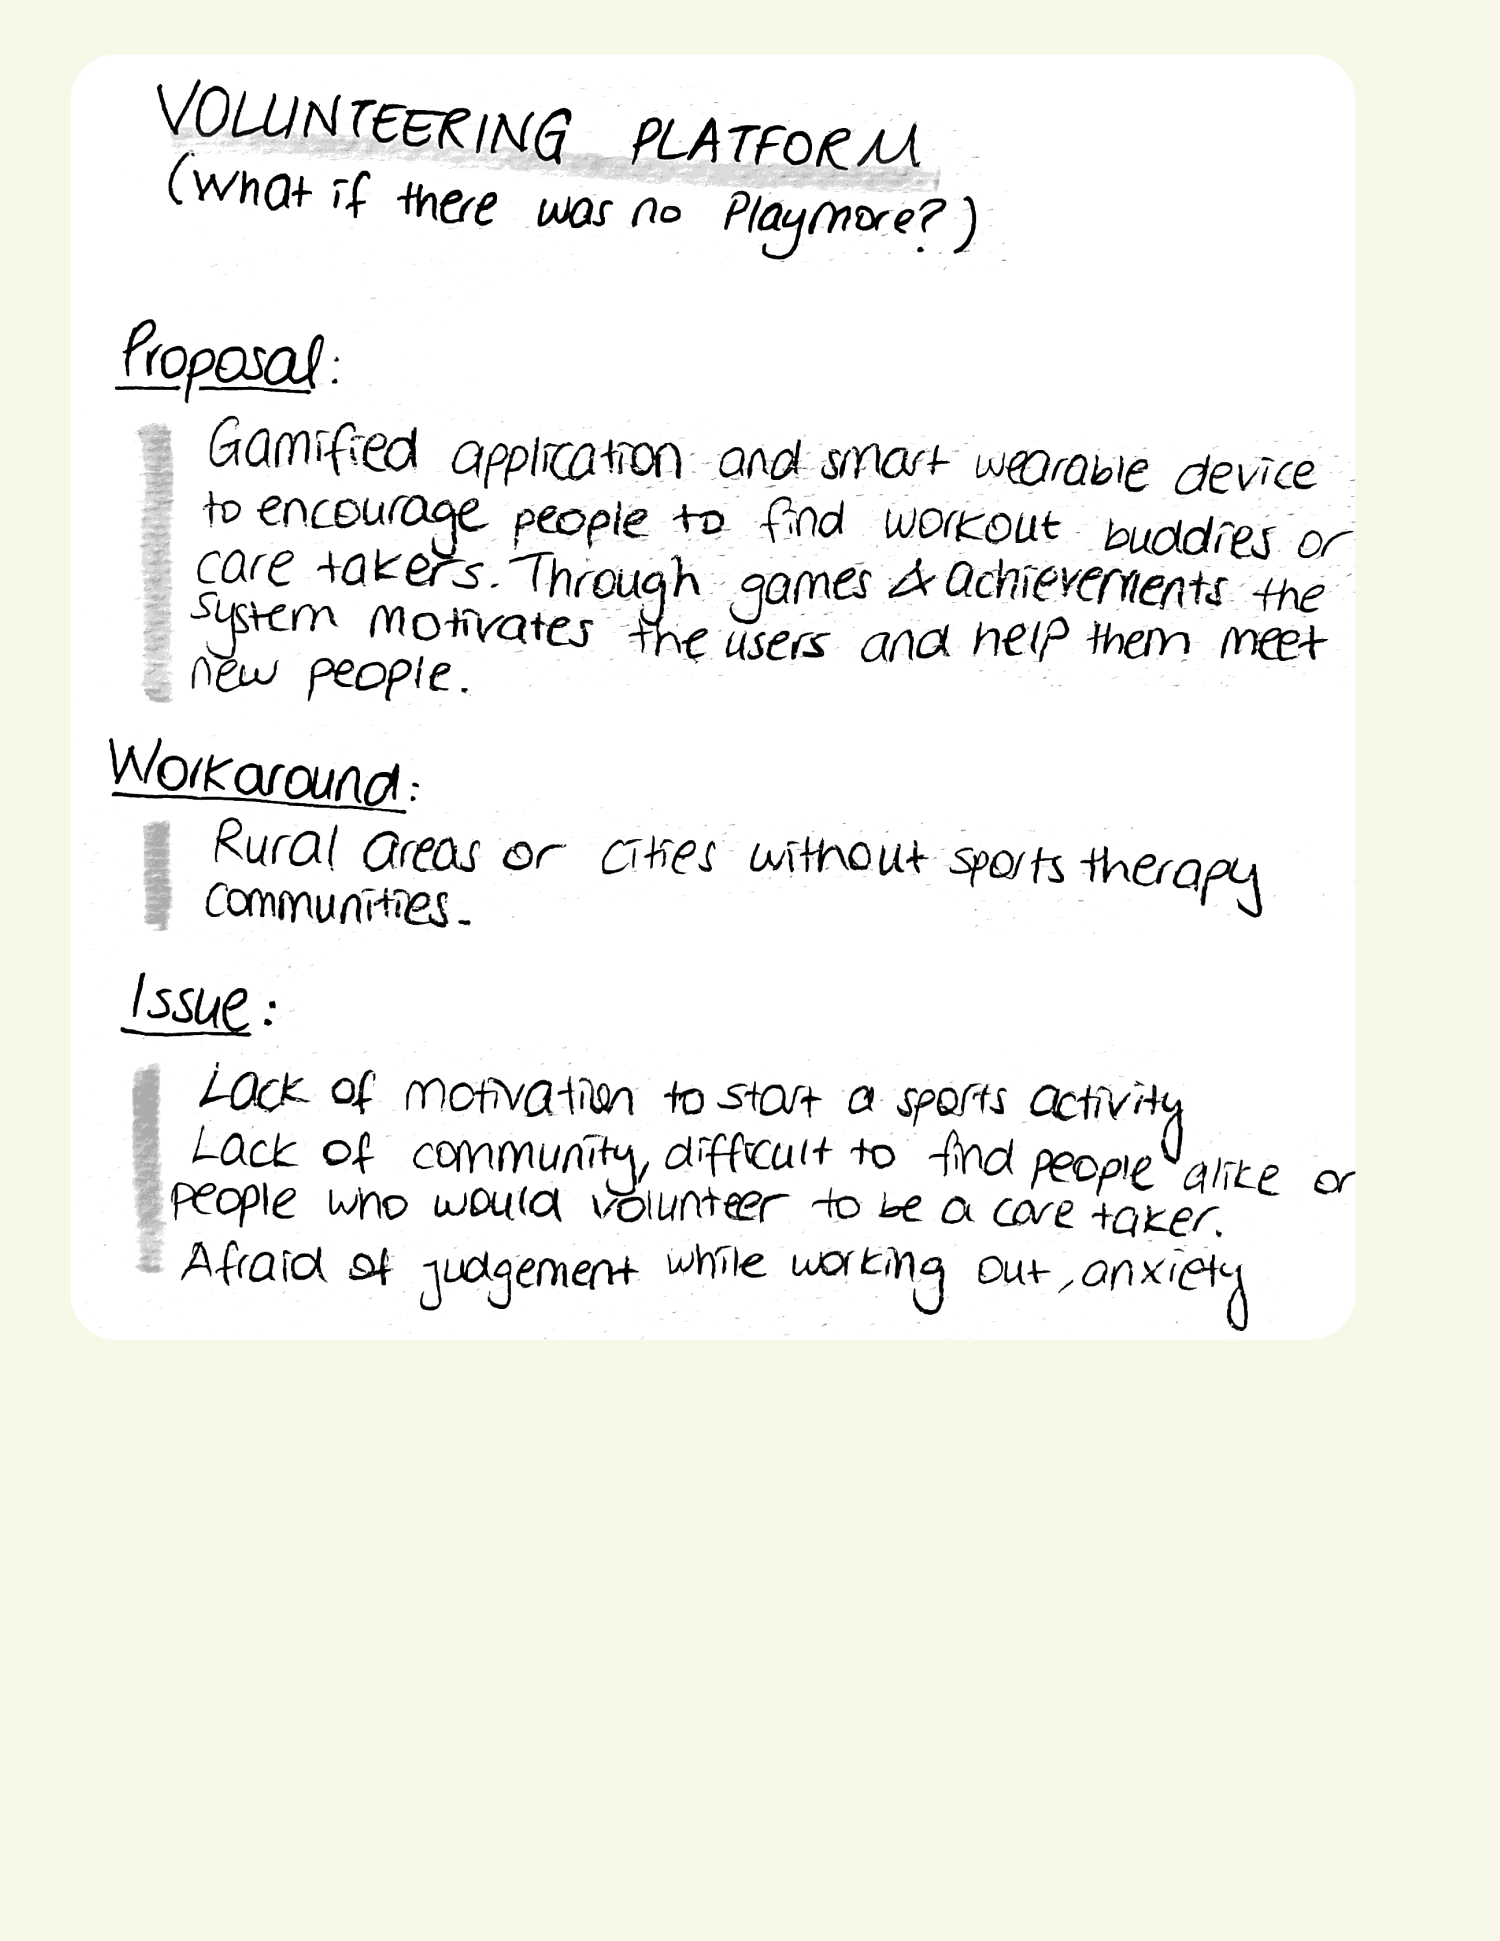 VOLUNTEERING PLATFORM
(What if there was no Playmore?)
Proposal:
Gamified application and smart wearable device
to encourage people to find workout buddies or
care takers. Through games & achievements the
system motivates the users and help them meet
new people.
Workaround:
Rural areas or cities without sports therapy
communities.
Issue:
Lack of motivation to start a sports activity
Lack of community, difficult to find people alike or
people who would volunteer to be a care taker.
Afraid of judgement while working out, anxiety